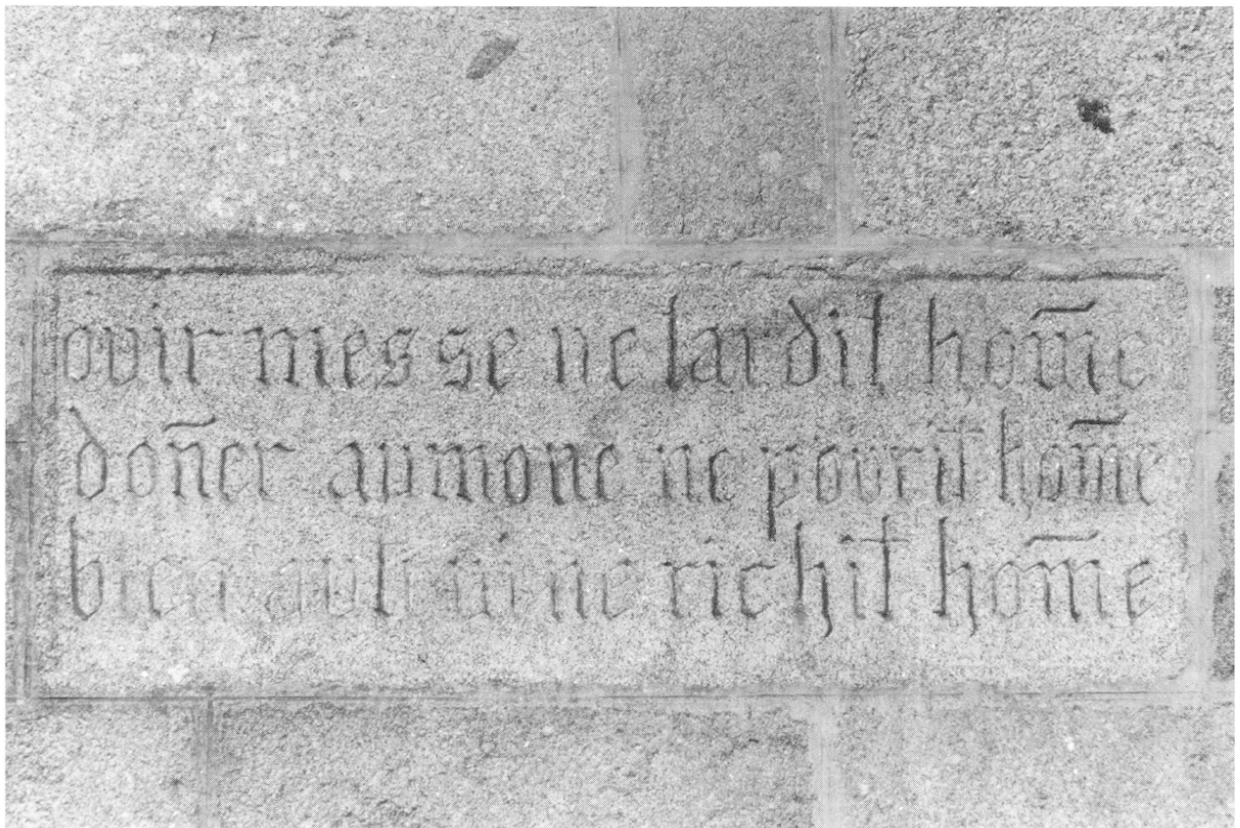 ovir messe ne tardit hom̄e
don̄er aumone ne povrit hom̄e
bien autrui ne richit hom̄e